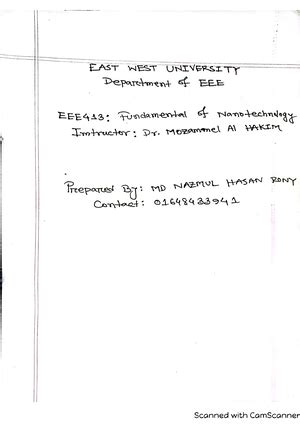 EAST WEST UNIVERSITY
Department of EEE
EEE413: Fundamental of Nanotechnology
Instructor: Dr. Mozammel Al HAKIM
Prepared By: MD NAZMUL HASAN RONY
Contact: 01648433941
Scanned with CamScanner